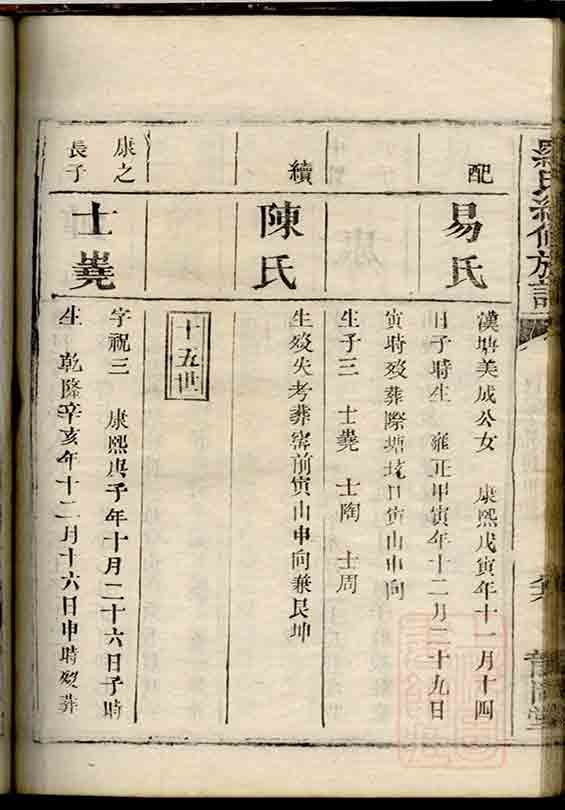 羅氏續修族譜
配
易氏
漢塘美成公女 康熙戊寅年十一月十四
日子時生 雍正甲寅年十二月二十九日
寅時歿葬際塘坑口寅山申向
生子三 士堯 士陶 士周
續
陳氏
生歿失考葬窰前寅山申向兼艮坤
十五世
康之
長子
士堯
字祝三 康熙庚子年十月二十六日子時
生 乾隆辛亥年十二月十六日申時歿葬